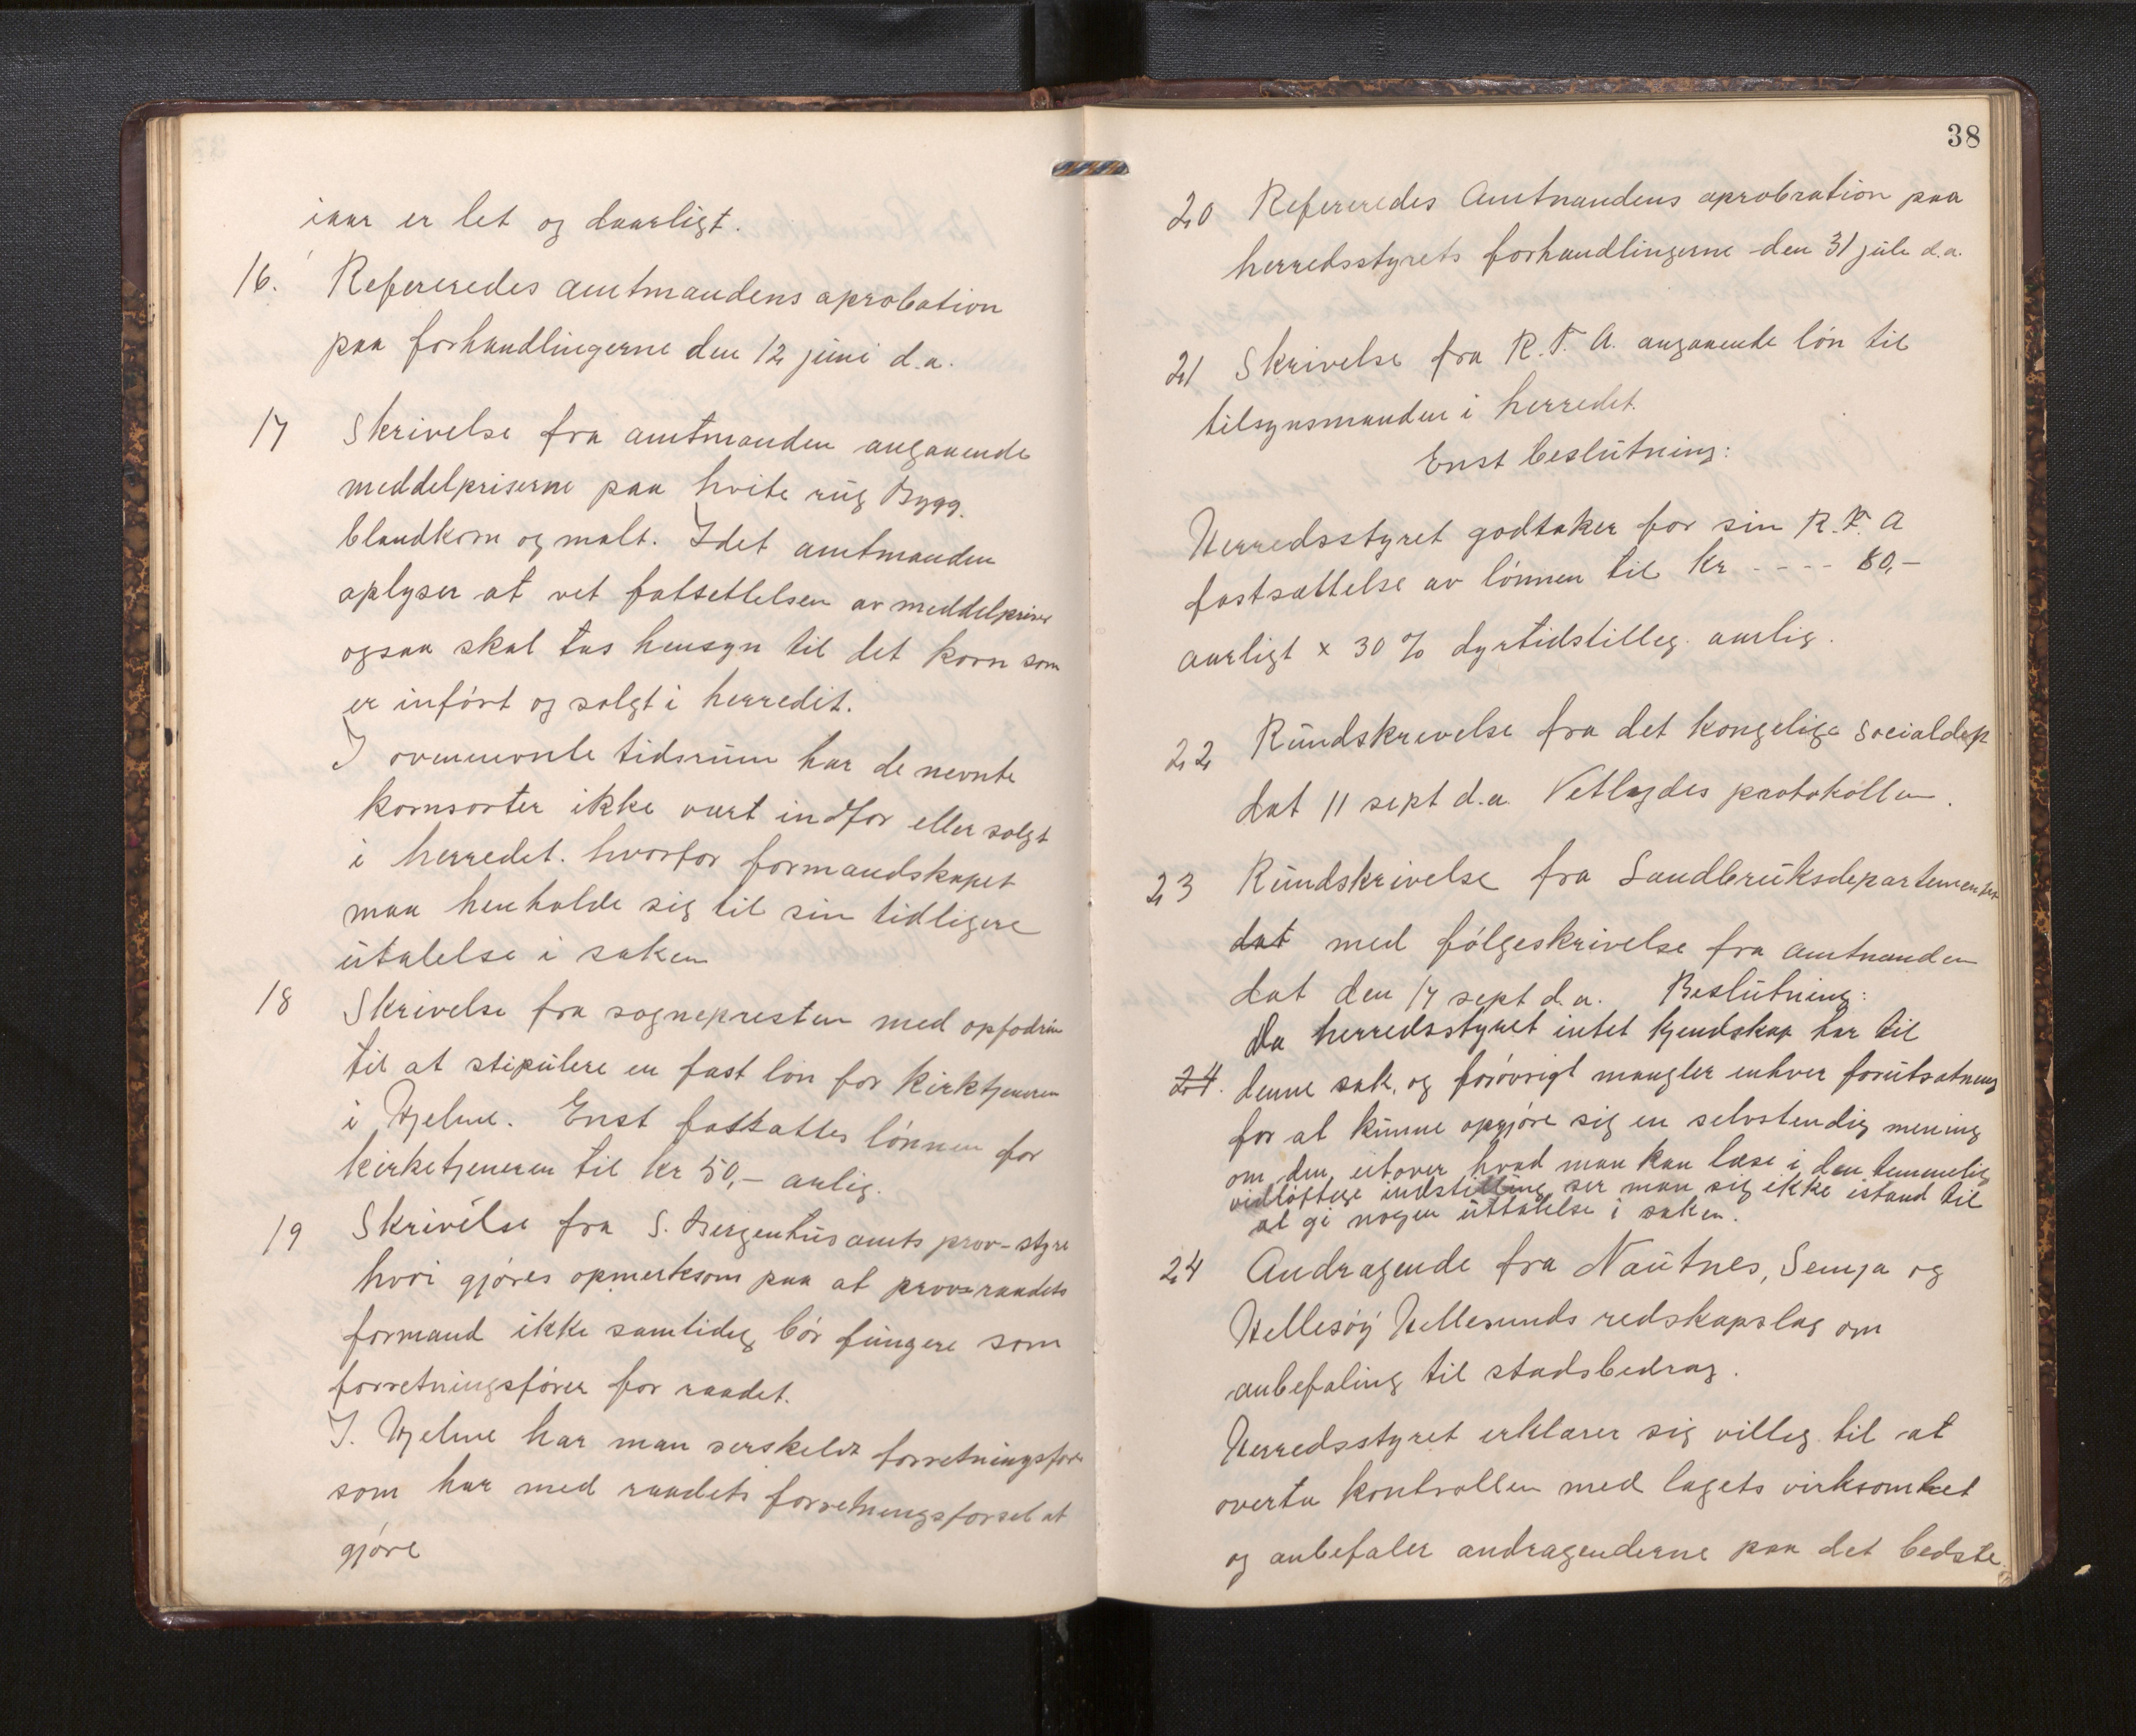 iaar er let og daarligt.
16. Refereredes amtmandens aprobation
paa forhandlingerne den 12 juni d.a.
17 Skrivelse fra amtmanden angaaende
meddelpriserne paa hvite rug Bygg.
blandkorn og malt. Idet amtmanden
oplyser at vet fatsettelsen av meddelpriser
ogsaa skal tas hensyn til det korn som
er infört og solgt i herredit.
I ovennevnte tidsrum har de nevnte
kornsorter ikke vært indfor eller solgt
i herredet. hvorfor formandskapet
maa henholde sig til sin tidligere
utalelse i saken
18 Skrivelse fra sognepresten med opfodrin
til at stipulere en fast lön for kirktjeneren
i Hjelme. Enst fastsattes lönnen for
kirketjeneren til kr 50,- aarlig.
19 Skrivelse fra S. Bergenhus amts prov-styre
hvori gjöres opmerksom paa at prov=raadets
formand ikke samtideg bör fungere som
forretningsförer for raadet.
I. Hjelme har man serskeldt forretningsför
som har med raadets forretningsforsel at
gjöre
38
20 Refereredes Amtmandens aprobration paa
herredsstyrets forhandlingerne den 31 juli d.a.
21 Skrivelse fra R.F.A. angaaende lön til
tilsynsmanden i herredet.
Enst beslutning:
Herredsstyret godtaker for sin R.F.A
fastsættelse av lönnen til kr - - - - 80,-
aarligt x 30 % dyrtidstilleg. aarlig.
22 Rundskrevelse fra det kongelige Socialdep
dat 11 sept d.a. Vetlagdes protokollen.
23 Rundskrivelse fra Landbruksdepartementet
dat med fölgeskrivelse fra amtmanden
dat den 17 sept d.a. Beslutning:
Da herredsstyret intet kjendskap har til
24. denne sak, og forövrigt mangler enhver forutsætning
for at kunne opgjöre sig en selvstendig mening
om den, utover hvad man kan læse i den temmelig
vidlöftige indstilling ser man sig ikke istand til
at gi nogen uttalelse i saken.
24 Andragende fra Nautnes, Semja og
Hellesöy Hellesunds redskapslag om
anbefaling til stadsbedrag.
Herredsstyret erklærer sig villeg til at
overta kontrollen med lagets virksomhet
og anbefaler andragenderne paa det bedste.